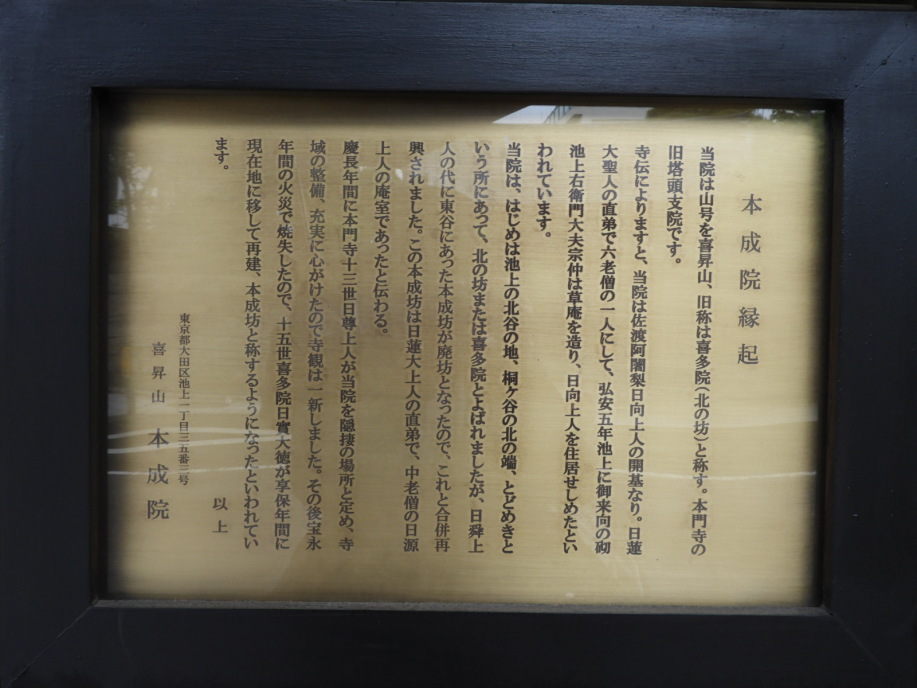 本成院縁起
当院は山号を喜昇山、旧称は喜多院（北の坊）と称す。本門寺の
旧塔頭支院です。
寺伝によりますと、当院は佐渡阿闍梨日向上人の開基なり。日蓮
大聖人の直弟で六老僧の一人にして、弘安五年池上に御来向の砌
池上右衛門大夫宗仲は草庵を造り、日向上人を住居せしめたとい
われています。
当院は、はじめは池上の北谷の地、桐ケ谷の北の端、とどめきと
いう所にあって、北の坊または喜多院とよばれましたが、日舜上
人の代に東谷にあった本成坊が廃坊となったので、これと合併再
興されました。この本成坊は日蓮大上人の直弟で、中老僧の日源
上人の庵室であったと伝わる。
慶長年間に本門寺十三世日尊上人が当院を隠捿の場所と定め、寺
域の整備、充実に心がけたので寺観は一新しました。その後宝永
年間の火災で焼失したので、十五世喜多院日實大徳が享保年間に
現在地に移して再建、本成坊と称するようになったといわれてい
ます。
以上
東京都大田区池上一丁目三五番三号
喜昇山 本成院